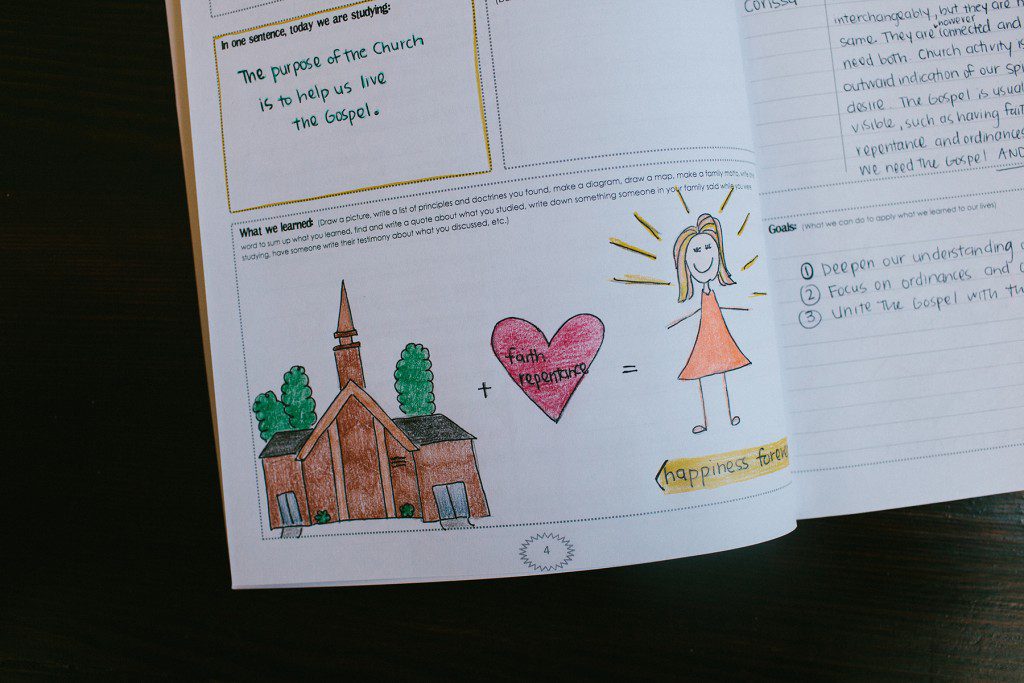 In one sentence, today we are studying:
The purpose of the Church
is to help us live
the Gospel.
What we learned: (Draw a picture, write a list of principles and doctrines you found, make a diagram, draw a map, make a family motto, write one
word to sum up what you learned, find and write a quote about what you studied, write down something someone in your family said while you were
studying, have someone write their testimony about what you discussed, etc.)
faith
repentance
+
=
happiness
4
Corissa
interchangeably, but they are
same. They are however connected and
need both. Church activity is
outward indication of our
desire. The Gospel is
visible, such as having
repentance and ordinances
We need the Gospel AND
Goals: (What we can do to apply what we learned to our lives)
1 Deepen our understanding
2 Focus on ordinances and
3 Unite the Gospel with